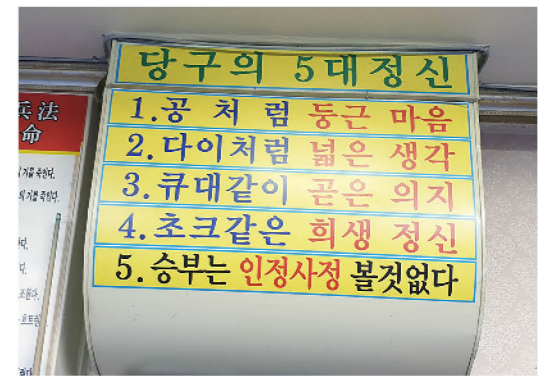 당구의 5대정신
1.공 처럼 둥근 마음
2.다이처럼 넓은 생각
3.큐대같이 곧은 의지
4.초크같은 희생 정신
5.승부는 인정사정 볼것없다
兵法
命